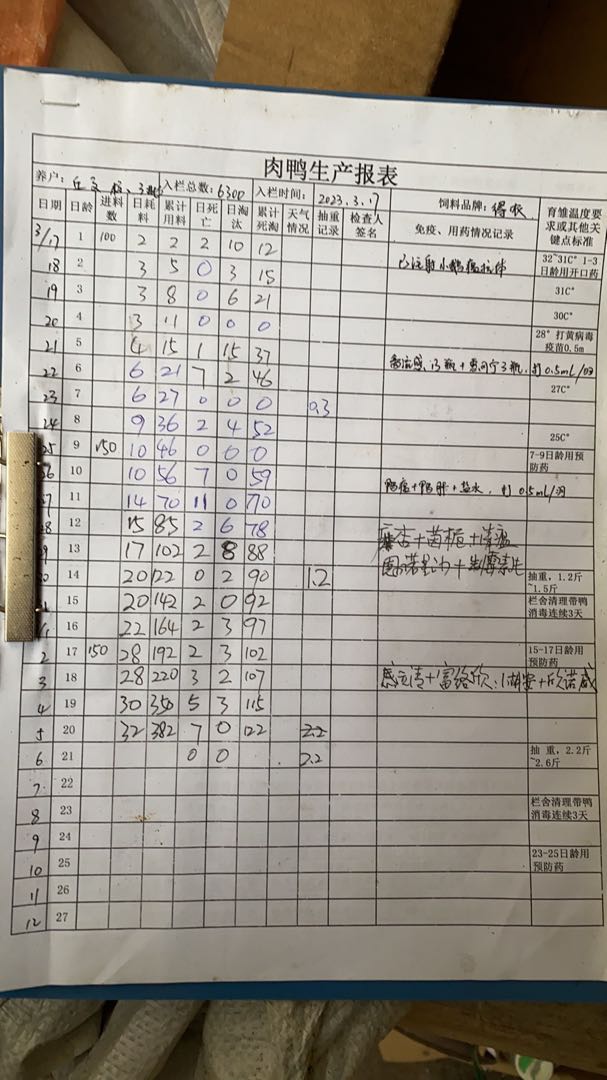 肉鸭生产报表
养户： 入栏总数：6300 入栏时间：2023.3.17 饲料品牌：
日期 日龄 进料数 日耗料 累计用料 日死亡 日淘汰 累计死淘 天气情况 抽重记录 检查人签名 免疫、用药情况记录 育雏温度要求或其他关键点标准
3/17 1 100 2 2 2 10 12 32~31C° 1-3日龄用开口药
18 2 3 5 0 3 15 已注射小鹅瘟抗体
19 3 3 8 0 6 21 31C°
20 4 3 11 0 0 0 30C°
21 5 4 15 1 15 37 28° 打黄病毒疫苗0.5m
22 6 6 21 7 2 46 打0.5mL/羽
23 7 6 27 0 0 0 0.3 27C°
24 8 9 36 2 4 52 25C°
25 9 150 10 46 0 0 0 7-9日龄用预防药
26 10 10 56 7 0 59 +鸭肝+盐水，打0.5mL/羽
27 11 14 70 11 0 70
28 12 15 85 2 6 78
13 17 102 2 8 88
14 20 122 0 2 90 1.2 抽重，1.2斤~1.5斤
15 20 142 2 0 92 栏舍清理带鸭消毒连续3天
16 22 164 2 3 97
2 17 150 28 192 2 3 102 15-17日龄用预防药
3 18 28 220 3 2 107
4 19 30 350 5 3 115
5 20 32 382 7 0 122 2.2
6 21 0 0 2.2 抽重，2.2斤~2.6斤
7 22
8 23 栏舍清理带鸭消毒连续3天
9 24
10 25 23-25日龄用预防药
11 26
12 27